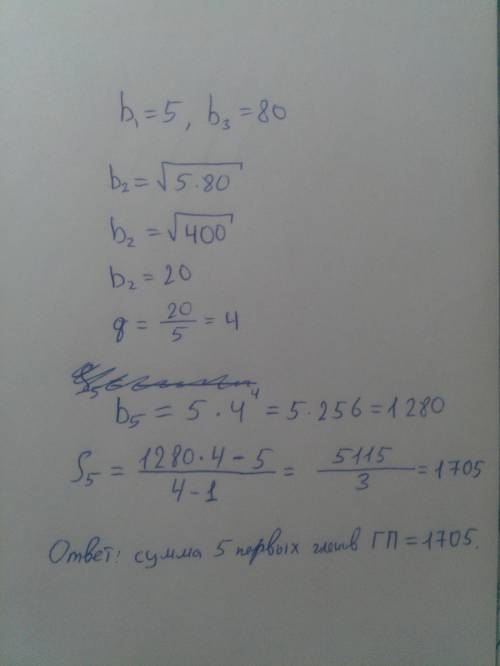 b₁ = 5, b₃ = 80
b₂ = √5·80
b₂ = √400
b₂ = 20
q = 20/5 = 4
b₅ = 5 · 4⁴ = 5·256 = 1280
S₅ = 1280·4 - 5 / 4 - 1 = 5115 / 3 = 1705
Ответ: сумма 5 первых членов ГП = 1705.